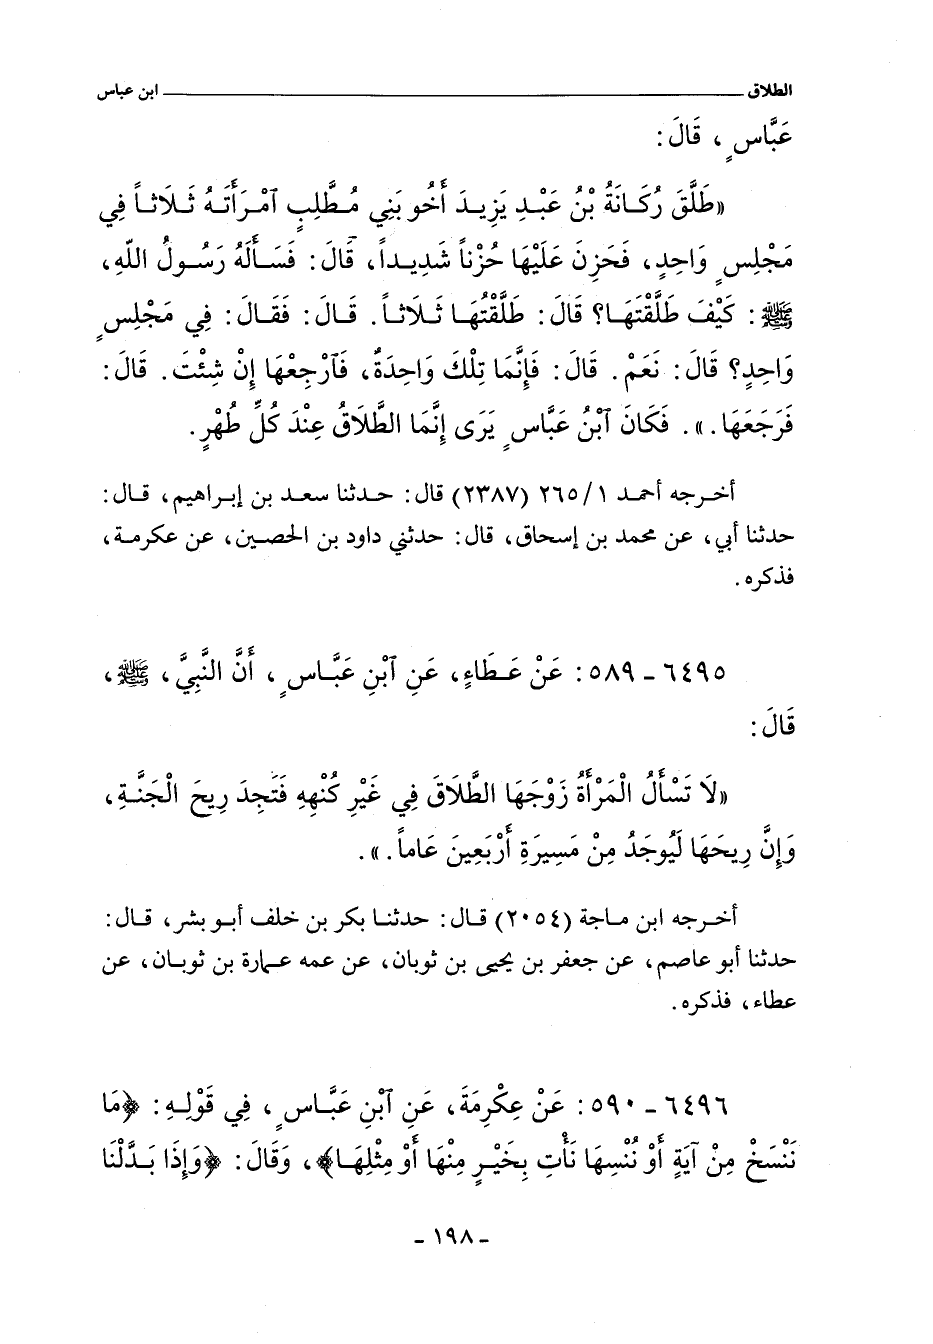 الطلاق ابن عباس
عَبَّاسٍ، قَالَ:
«طَلَّقَ رُكَانَةُ بْنُ عَبْدِ يَزِيدَ أَخُو بَنِي مُطَّلِبٍ ٱمْرَأَتَهُ ثَلَاثاً فِي
مَجْلِسٍ وَاحِدٍ، فَحَزِنَ عَلَيْهَا حُزْناً شَدِيداً، قَالَ: فَسَأَلَهُ رَسُولُ اللهِ،
ﷺ: كَيْفَ طَلَّقْتَهَا؟ قَالَ: طَلَّقْتُهَا ثَلَاثاً. قَالَ: فَقَالَ: فِي مَجْلِسٍ
وَاحِدٍ؟ قَالَ: نَعَمْ. قَالَ: فَإِنَّمَا تِلْكَ وَاحِدَةٌ، فَٱرْجِعْهَا إِنْ شِئْتَ. قَالَ:
فَرَجَعَهَا.». فَكَانَ ٱبْنُ عَبَّاسٍ يَرَى إِنَّمَا الطَّلَاقُ عِنْدَ كُلِّ طُهْرٍ.
أخرجه أحمد ١/ ٢٦٥ (٢٣٨٧) قال: حدثنا سعد بن إبراهيم، قال:
حدثنا أبي، عن محمد بن إسحاق، قال: حدثني داود بن الحصين، عن عكرمة،
فذكره.
٦٤٩٥ - ٥٨٩: عَنْ عَطَاءٍ، عَنِ ٱبْنِ عَبَّاسٍ، أَنَّ النَّبِيَّ، ﷺ،
قَالَ:
«لَا تَسْأَلُ الْمَرْأَةُ زَوْجَهَا الطَّلَاقَ فِي غَيْرِ كُنْهِهِ فَتَجِدَ رِيحَ الْجَنَّةِ،
وَإِنَّ رِيحَهَا لَيُوجَدُ مِنْ مَسِيرَةِ أَرْبَعِينَ عَاماً.».
أخرجه ابن ماجة (٢٠٥٤) قال: حدثنا بكر بن خلف أبو بشر، قال:
حدثنا أبو عاصم، عن جعفر بن يحيى بن ثوبان، عن عمه عمارة بن ثوبان، عن
عطاء، فذكره.
٦٤٩٦ - ٥٩٠: عَنْ عِكْرِمَةَ، عَنِ ٱبْنِ عَبَّاسٍ، فِي قَوْلِهِ: ﴿مَا
نَنْسَخْ مِنْ آيَةٍ أَوْ نُنْسِهَا نَأْتِ بِخَيْرٍ مِنْهَا أَوْ مِثْلِهَا﴾، وَقَالَ: ﴿وَإِذَا بَدَّلْنَا
- ١٩٨ -